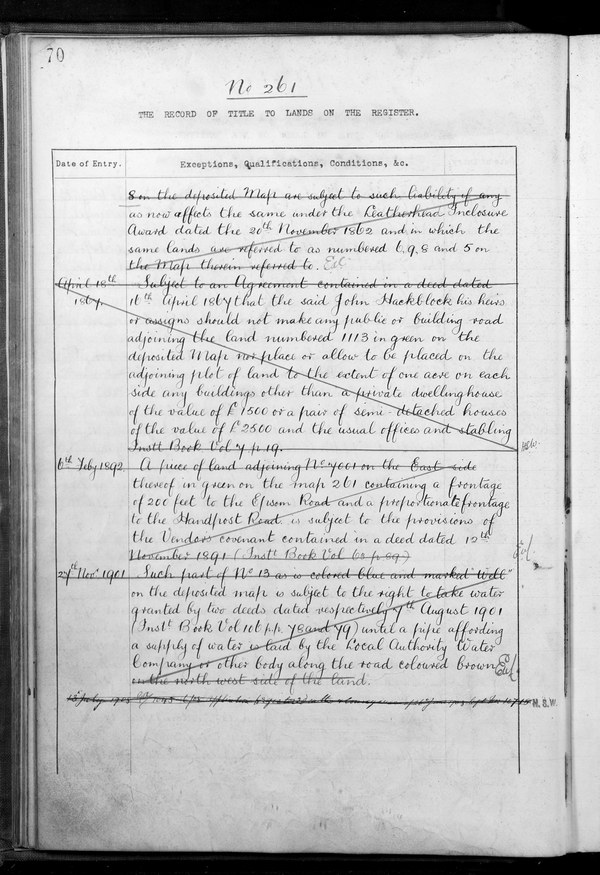 70
No 261
THE RECORD OF TITLE TO LANDS ON THE REGISTER.
Date of Entry.
Exceptions, Qualifications, Conditions, &c.
8 on the deposited Map are subject to such liability if any
as now affects the same under the Leatherhead Inclosure
Award dated the 20th November 1862 and in which the
same lands are referred to as numbered 6, 9, 8 and 5 on
the Map therein referred to.
April 18th 1867.
Subject to an Agreement contained in a deed dated
16th April 1867 that the said John Hackblock his heirs
or assigns should not make any public or building road
adjoining the land numbered 1113 in green on the
deposited Map nor place or allow to be placed on the
adjoining plot of land to the extent of one acre on each
side any buildings other than a private dwelling house
of the value of £1500 or a pair of semi-detached houses
of the value of £2500 and the usual offices and stabling
Instt Book Vol 7 p. 19.
6th Feby 1892.
A piece of land adjoining No 7001 on the East side
thereof in green on the map 261 containing a frontage
of 200 feet to the Epsom Road and a proportionate frontage
to the Handpost Road is subject to the provisions of
the Vendors covenant contained in a deed dated 12th
November 1891 (Instt Book Vol 63 p. 89)
27th Novr 1901
Such part of No 13 as is colored blue and marked "Well"
on the deposited map is subject to the right to take water
granted by two deeds dated respectively 7th August 1901
(Instt Book Vol 106 pp. 78 and 79) until a pipe affording
a supply of water is laid by the Local Authority Water
Company or other body along the road coloured brown
on the north west side of the land.
H.S.W.